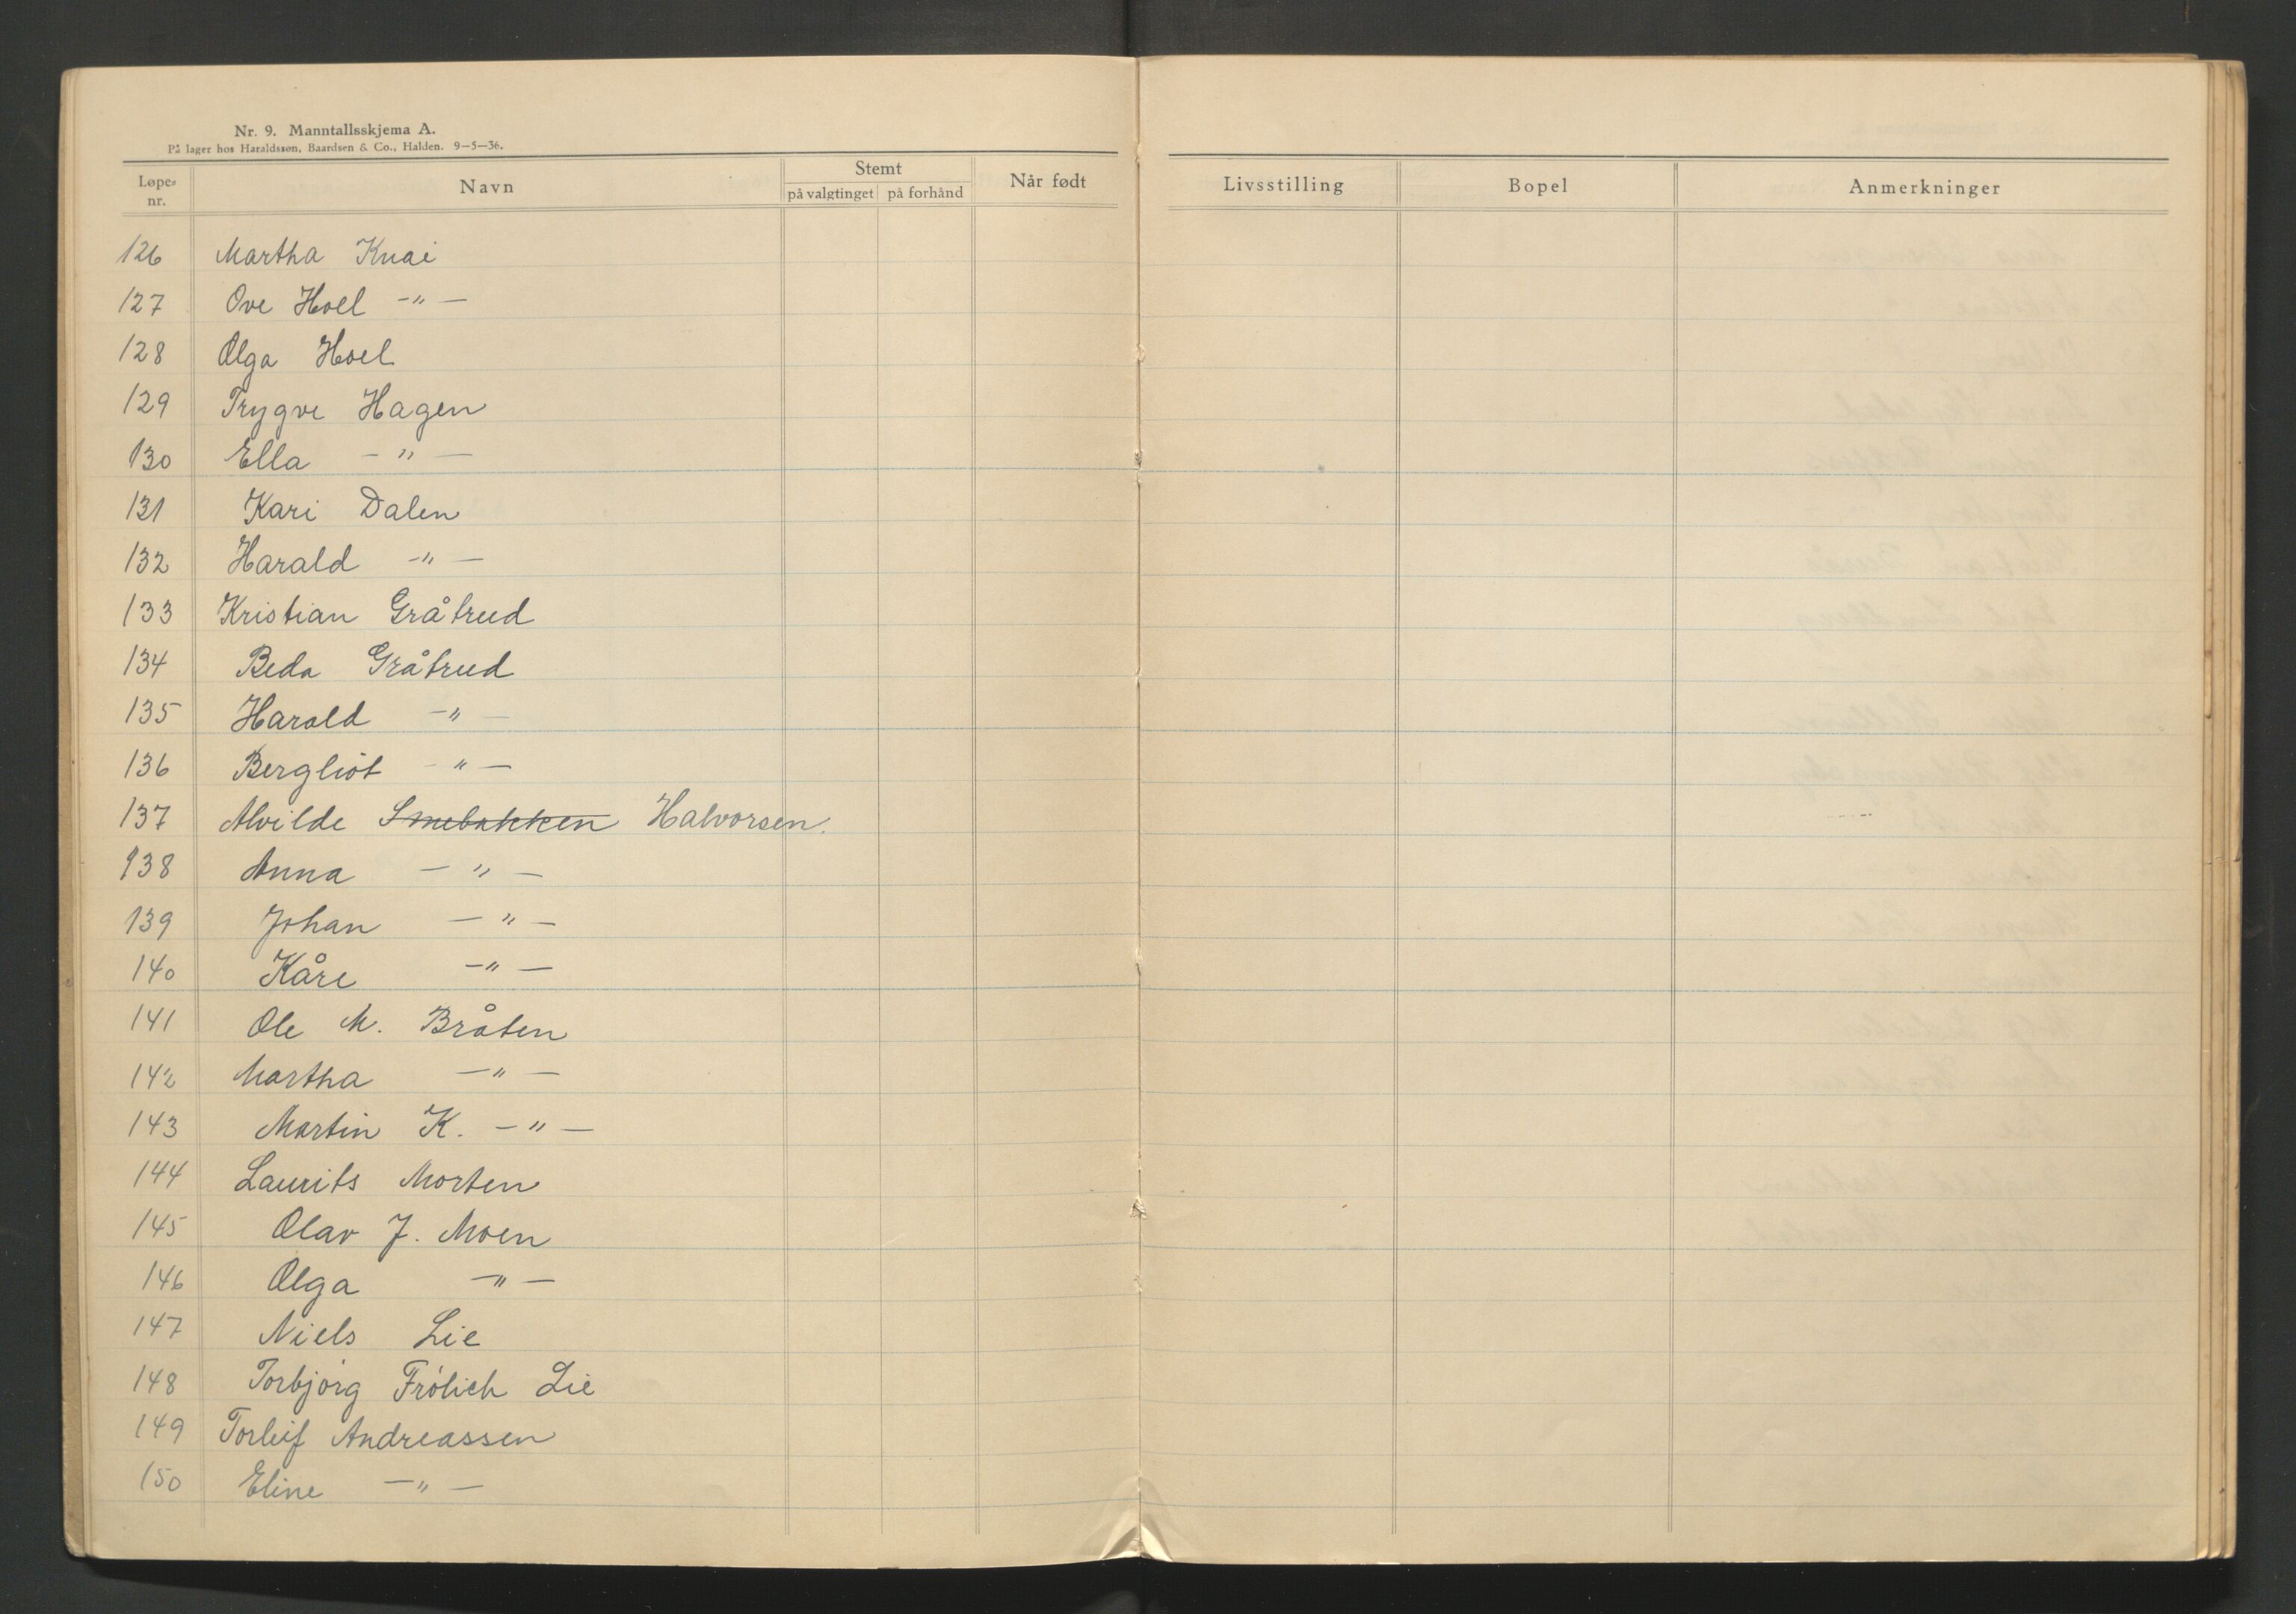 Nr. 9. Manntallsskjema A.
På lager hos Haraldssøn, Baardsen & Co., Halden. 9—5—36.
Løpe-nr. Navn Stemt på valgtinget på forhånd Når født Livsstilling Bopel Anmerkninger
126 Martha Knai
127 Ove Hoel —"—
128 Olga Hoel
129 Trygve Hagen
130 Ella —"—
131 Kari Dalen
132 Harald —"—
133 Kristian Gråtrud
134 Beda Gråtrud
135 Harald —"—
136 Bergliot —"—
137 Alvilde Smebakken Halvorsen.
138 Anna —"—
139 Johan —"—
140 Kåre —"—
141 Ole M. Bråten
142 Martha —"—
143 Martin K. —"—
144 Laurits Morten
145 Olav J. Moen
146 Olga —"—
147 Niels Lie
148 Torbjørg Frölich Lie
149 Torleif Andreassen
150 Eline —"—